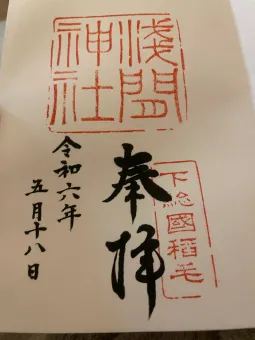 奉拝
下総國稲毛
浅間神社
令和六年
五月十八日